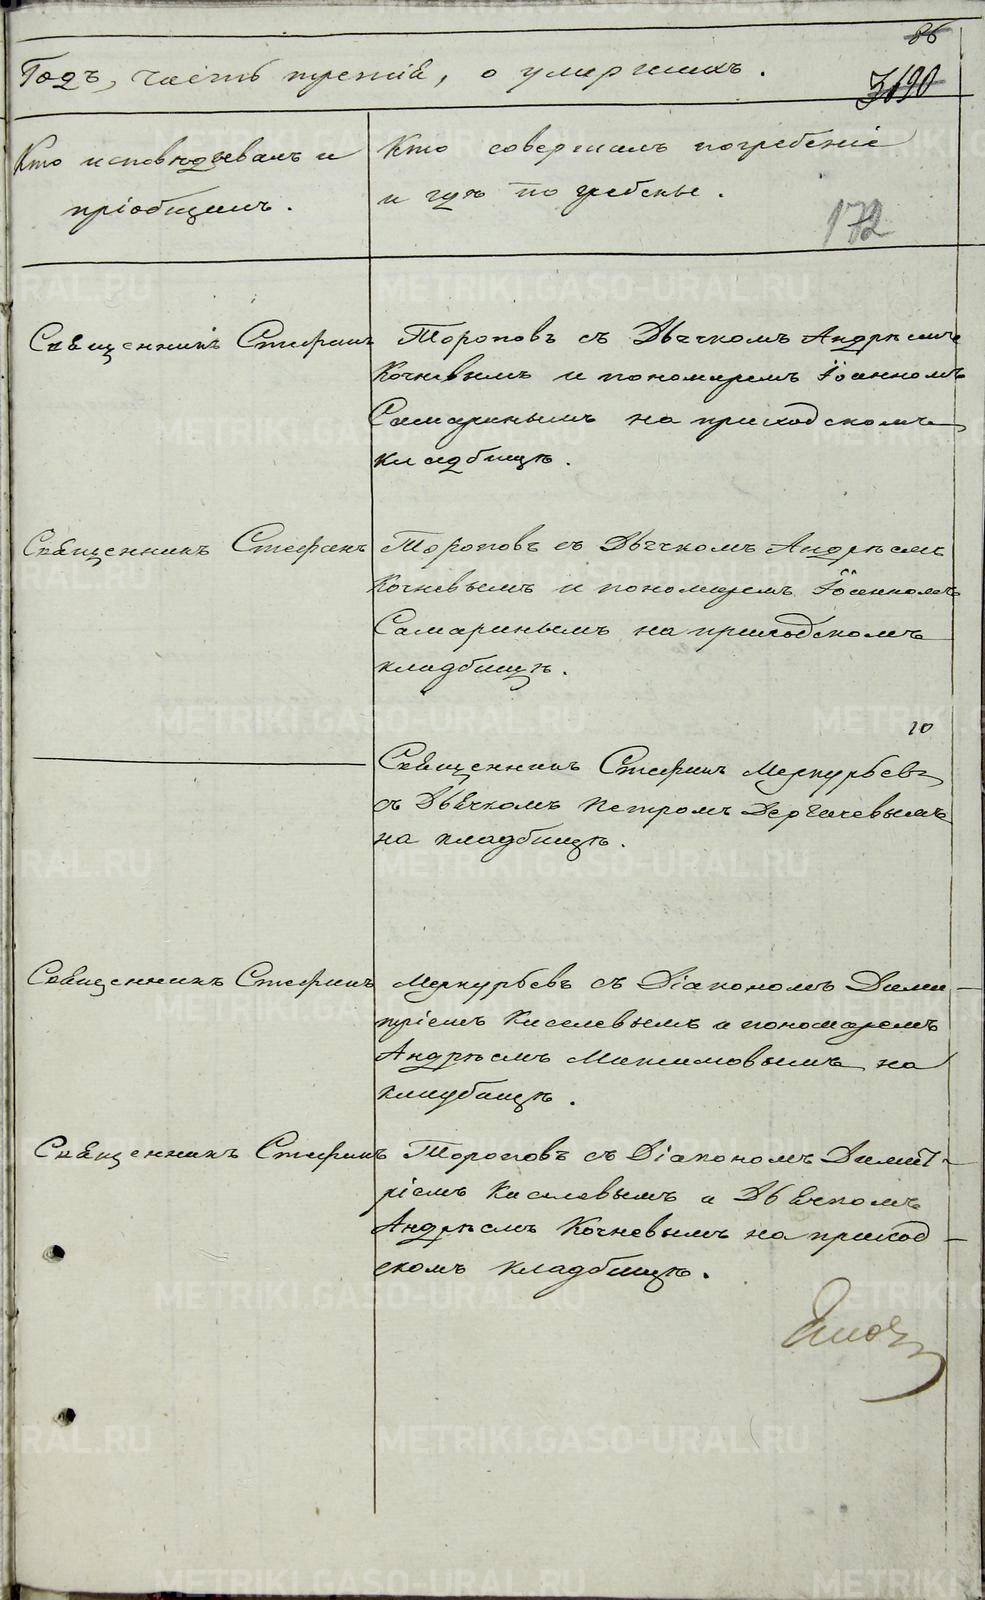 86
Годъ, часть третія, о умершихъ.
3690
Кто исповѣдывалъ и
пріобщилъ.
Кто совершалъ погребеніе
и гдѣ погребены.
172
Священникъ Стефанъ Тороповъ съ Дьячкомъ Андреемъ
Кочневымъ и пономаремъ Іоанномъ
Самаринымъ на приходскомъ
кладбищѣ.
Священникъ Стефанъ Тороповъ съ Дьячкомъ Андреемъ
Кочневымъ и пономаремъ Іоанномъ
Самаринымъ на приходскомъ
кладбищѣ.
10
Священникъ Стефанъ Меркурьевъ
съ Дьячкомъ Петромъ Дергачевымъ
на кладбищѣ.
Священникъ Стефанъ Меркурьевъ съ Діакономъ Дими-
тріемъ Киселевымъ и пономаремъ
Андреемъ Максимовымъ на
кладбищѣ.
Священникъ Стефанъ Тороповъ съ Діакономъ Димит-
ріемъ Киселевымъ и Дьячкомъ
Андреемъ Кочневымъ на приход-
скомъ кладбищѣ.
METRIKI.GASO-URAL.RU